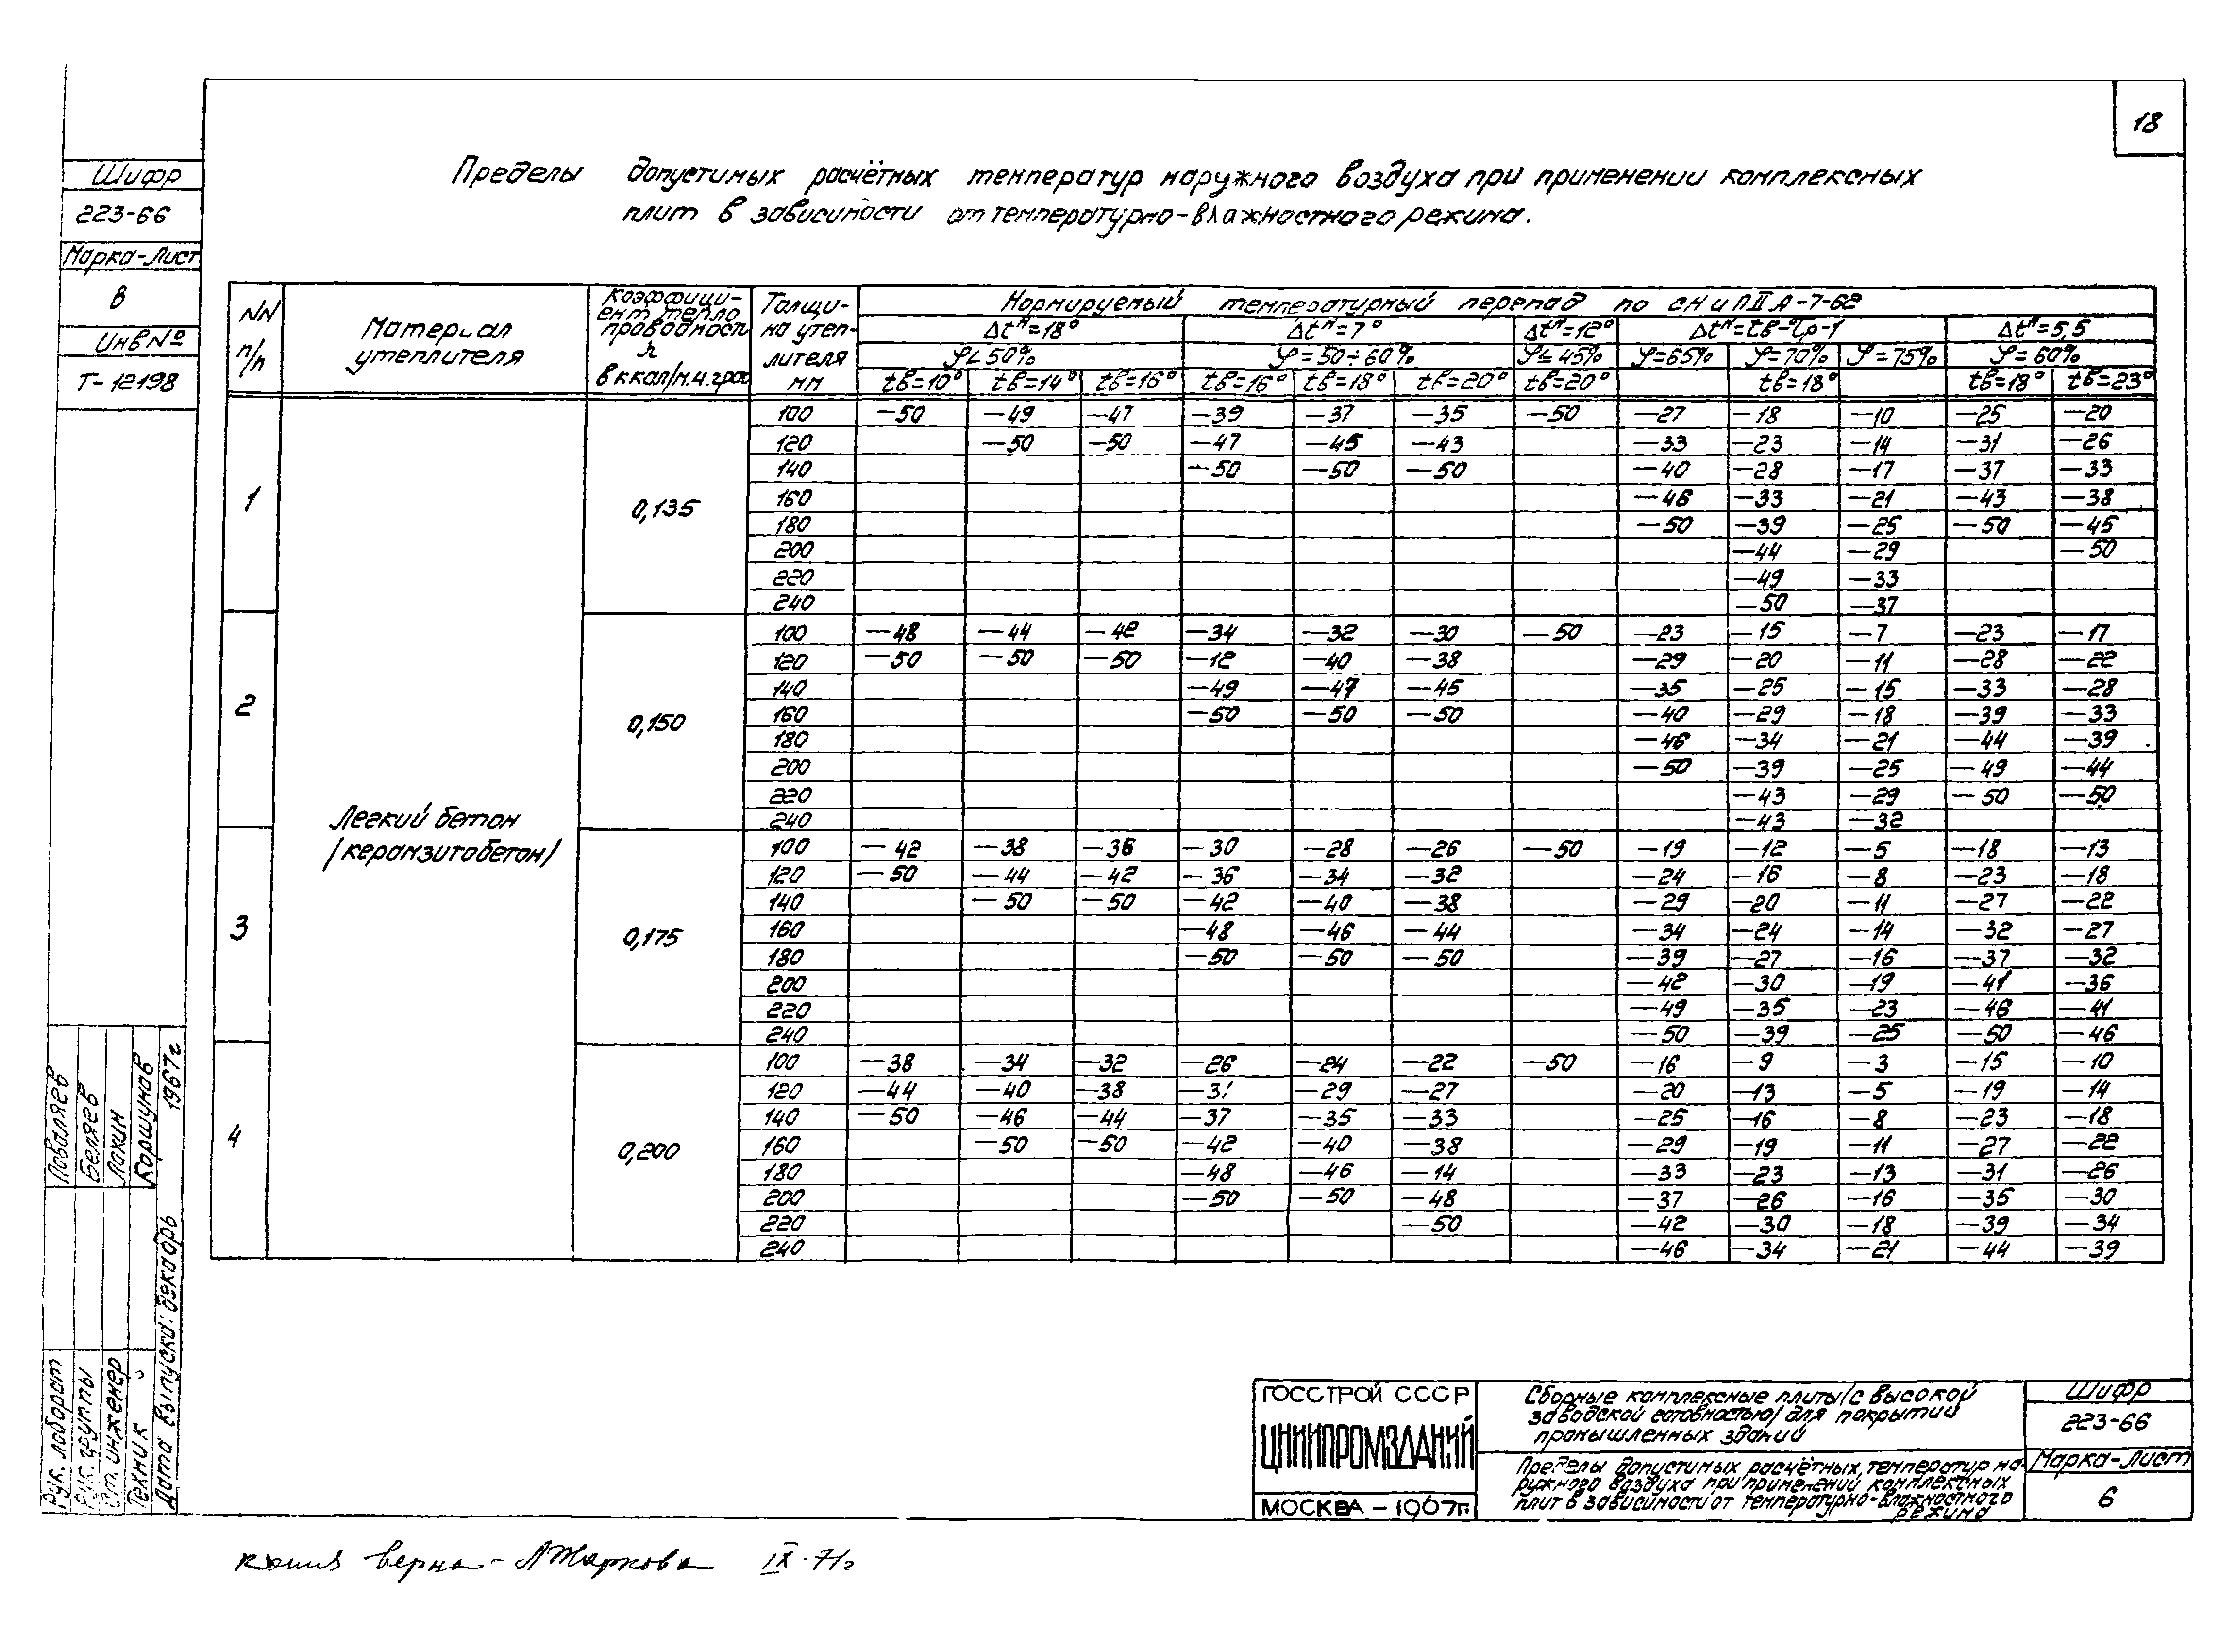 18
Пределы допустимых расчётных температур наружного воздуха при применении комплексных
плит в зависимости от температурно-влажностного режима.
Шифр
223-66
Марка-Лист
В
Инв№
Т-12198
NN п/п | Материал утеплителя | Коэффици-ент тепло проводности λ в ккал/м.ч.град | Толщи-на утеп-лителя мм | Нормируемый температурный перепад по СНиП II А-7-62
Δtᴴ=18° | Δtᴴ=7° | Δtᴴ=12° | Δtᴴ=tв-τр-1 | Δtᴴ=5,5
φ<50% | φ=50÷60% | φ≤45% | φ=65% | φ=70% | φ=75% | φ=60%
tв=10° | tв=14° | tв=16° | tв=16° | tв=18° | tв=20° | tв=20° | tв=18° | tв=18° | tв=23°
Легкий бетон
/керамзитобетон/
1 | 0,135
100 | -50 | -49 | -47 | -39 | -37 | -35 | -50 | -27 | -18 | -10 | -25 | -20
120 | | -50 | -50 | -47 | -45 | -43 | | -33 | -23 | -14 | -31 | -26
140 | | | | -50 | -50 | -50 | | -40 | -28 | -17 | -37 | -33
160 | | | | | | | | -46 | -33 | -21 | -43 | -38
180 | | | | | | | | -50 | -39 | -25 | -50 | -45
200 | | | | | | | | | -44 | -29 | | -50
220 | | | | | | | | | -49 | -33 | |
240 | | | | | | | | | -50 | -37 | |
2 | 0,150
100 | -48 | -44 | -42 | -34 | -32 | -30 | -50 | -23 | -15 | -7 | -23 | -17
120 | -50 | -50 | -50 | -12 | -40 | -38 | | -29 | -20 | -11 | -28 | -22
140 | | | | -49 | -47 | -45 | | -35 | -25 | -15 | -33 | -28
160 | | | | -50 | -50 | -50 | | -40 | -29 | -18 | -39 | -33
180 | | | | | | | | -46 | -34 | -21 | -44 | -39
200 | | | | | | | | -50 | -39 | -25 | -49 | -44
220 | | | | | | | | | -43 | -29 | -50 | -50
240 | | | | | | | | | -43 | -32 | |
3 | 0,175
100 | -42 | -38 | -36 | -30 | -28 | -26 | -50 | -19 | -12 | -5 | -18 | -13
120 | -50 | -44 | -42 | -36 | -34 | -32 | | -24 | -16 | -8 | -23 | -18
140 | | -50 | -50 | -42 | -40 | -38 | | -29 | -20 | -11 | -27 | -22
160 | | | | -48 | -46 | -44 | | -34 | -24 | -14 | -32 | -27
180 | | | | -50 | -50 | -50 | | -39 | -27 | -16 | -37 | -32
200 | | | | | | | | -42 | -30 | -19 | -41 | -36
220 | | | | | | | | -49 | -35 | -23 | -46 | -41
240 | | | | | | | | -50 | -39 | -25 | -50 | -46
4 | 0,200
100 | -38 | -34 | -32 | -26 | -24 | -22 | -50 | -16 | -9 | -3 | -15 | -10
120 | -44 | -40 | -38 | -31 | -29 | -27 | | -20 | -13 | -5 | -19 | -14
140 | -50 | -46 | -44 | -37 | -35 | -33 | | -25 | -16 | -8 | -23 | -18
160 | | -50 | -50 | -42 | -40 | -38 | | -29 | -19 | -11 | -27 | -22
180 | | | | -48 | -46 | -14 | | -33 | -23 | -13 | -31 | -26
200 | | | | -50 | -50 | -48 | | -37 | -26 | -16 | -35 | -30
220 | | | | | | -50 | | -42 | -30 | -18 | -39 | -34
240 | | | | | | | | -46 | -34 | -21 | -44 | -39
Рук. лаборат Поваляев
Рук. группы Беляев
Ст. инженер Локин
Техник Коршунов
Дата выпуска: декабрь 1967г
ГОССТРОЙ СССР
ЦНИИПРОМЗДАНИЙ
МОСКВА - 1967г.
Сборные комплексные плиты/с высокой
заводской готовностью/для покрытий
промышленных зданий
Пределы допустимых расчётных, температур на-
ружного воздуха при применений комплектных
плит в зависимости от температурно-влажностного
режима
Шифр
223-66
Марка-Лист
6
копия верна - ЛЖаркова IX-71г